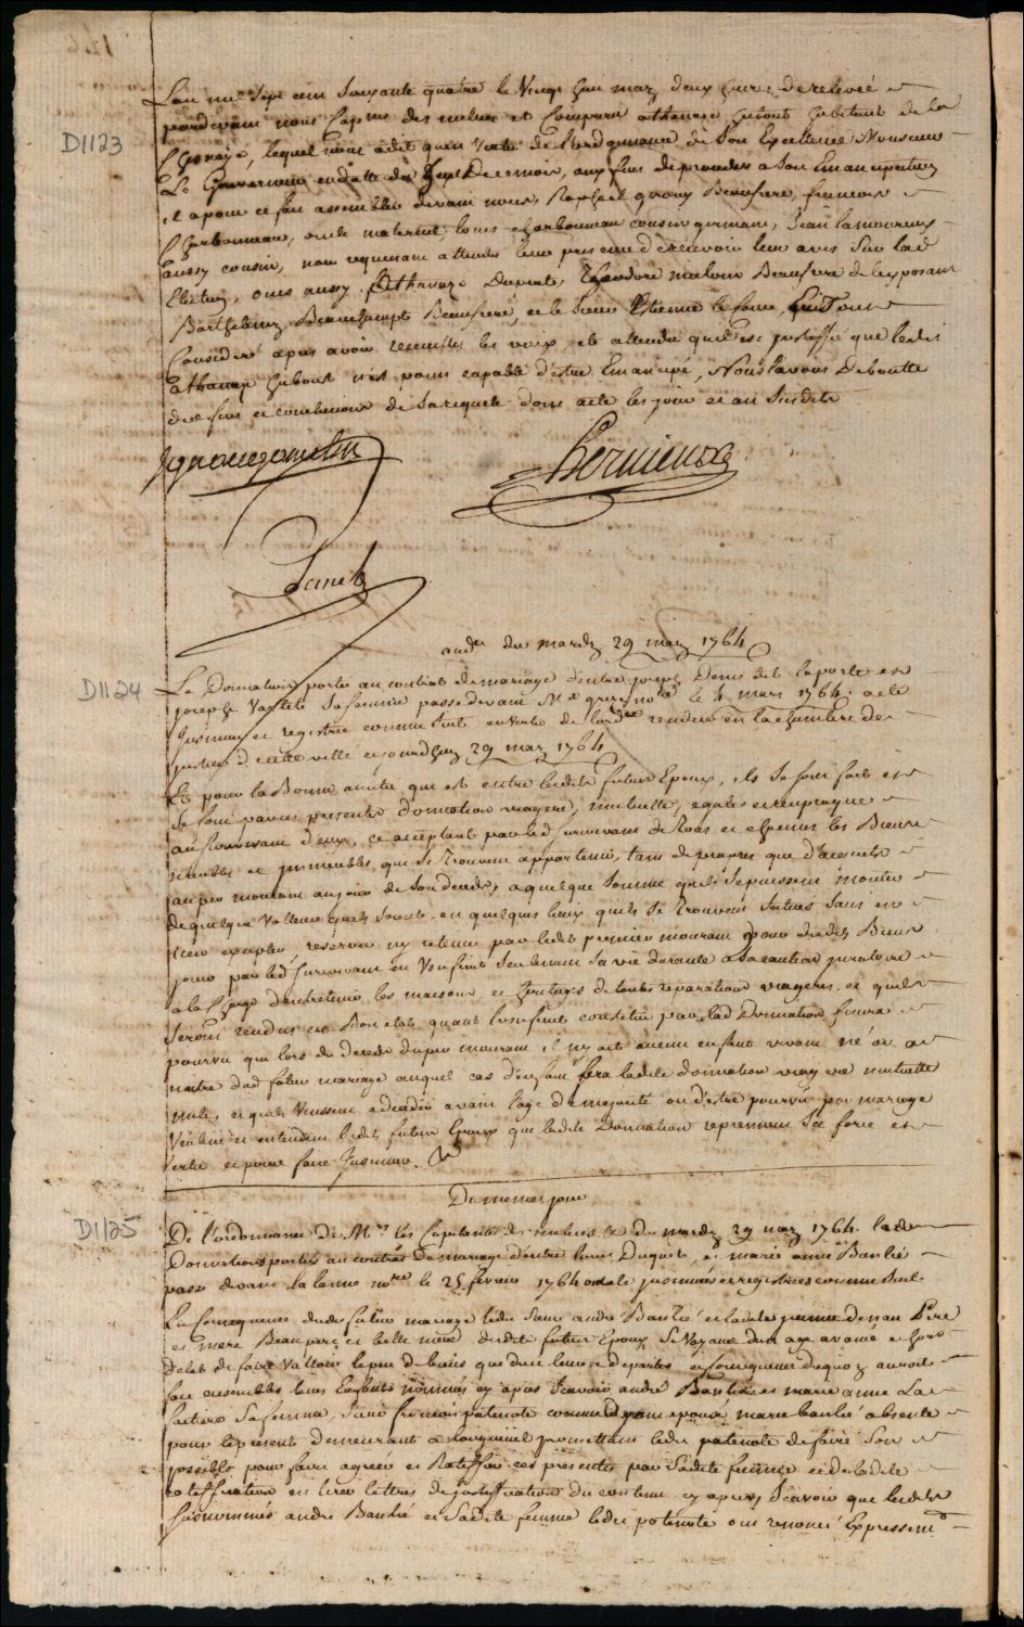 L'an mil Sept cens Soixante quatre le Vingt huit mars deux heures de relevée
pardevant nous Capne des milices et Comparu athanaze hubout habitant de la
D1123
Chenaye, lequel nous a dit qu'en Vertu de L'ordonnance de Son Excellence Monsieur
Le Gouverneur en datte du Sept De ce mois, aux fins de proceder a Son Emancipation
il a pour ce fait assemblés devant nous, Raphael Beaufrere, francois
Charbonneau, oncle maternel, louis charbonneau cousin germain, Jean lamoureux
aussy cousin, nous requerant attendu leur presence d'recevoir leur avis Sur lad
Election, ouis aussy Athanaze Dupras, Theodore Beaufrere de lexposant
Barthelemy Beauchamps Beaufrere, et le Sieur Etienne le Tout
Considéré apres avoir receuillis les voix, et attendu quil est justiffié que ledit
athanaze hubout n'est point capable d'être Emancipé, Nous l'avons Deboutté
des fins et conclusions de Sa requete dont acte les jour et an Susdits
Ignace gamelin
hervieux
Panet
audce du mardy 29 mars 1764
D1124
La Donnation portée au contrat de mariage d'entre joseph Denis dit laporte et
joseph Sa femme passé devant Me not le 4 mars 1764. a été
jnsinuée et registrée comme Suit en Vertu de lordce rendue en la chambre de
justice d cette ville cejourdhuy 29 mars 1764
Et pour la Bonne amitié que ont entre lesdits futurs Epoux, ils Se sont faits et
Se font par ces presentes donnation viagere, mutuelle, egalle et reciproque
au Survivant d'eux, ce acceptant par led survivant de tous et chacuns les Biens
meubles et jmmeubles qui Se trouveront appartenir, tant de propres que d'acquets
au per mourant au jour de Son deceds, a quelque Somme quils Se puissent monter
de quelque Valleur quils Soient en quelques lieux quils Se trouvent Scitués Sans en
rien excepter, reserver ny retenir par ledit premier mourant pour desdits Biens
jouir par led Survivant en Vsufruit Seulement Sa vie durante a Sa caution juratoire
a la charge d'entretenir les maisons et heritages de toutes reparations viageres, et quils
Seront rendus en Bon etat, quant l'usufruit constitué par lad Donnation finira
pourvu que lors du deceds du per mourant il ny ait aucun enfant vivant né ou a
naitre dud futur mariage auquel cas d'enfant Sera ladite donnation viagere mutuelle
nulle, et quils Vinssent a deceder avant l'age de majorité ou d'estre pourvû par mariage
Veulent et entendent lesdits futurs Epoux que ladite Donnation reprennent Sa force et
Vertu et pour faire jnsinuer
Du meme jour
D1125
De l'ordonnance de Mrs les Capitaines de milices &c du mardy 29 mars 1764. lade
Donnation portée au contrat de mariage d'entre louis Duquet, et marie anne Banlié
passé devant la lanne nore le 25 fevrier 1764 a été jnsinuée et registrée comme Suit
En Consequence dudit futur mariage ledit Sieur andré Banlié et laditte Pere
et mere Beaupere et belle mere dudit futur Epoux Se Voyant d'un age avancé et hors
detat de faire Valloir le peu de biens que dieu leur a departis en consequence dequoy auroit
fait ensembles leurs Enfants nommés cy apres Scavoir andré Banlié et marie anne La
Sa femme, Sieur francois patenote comme ayant epousé marie banlié absente
pour le present demeurant a longueuil promettant ledit patenote de faire Son
possible pour faire agreer et Ratiffier ces presentes par Saditte femme et de ladite
ratiffication en tirer lettres de justiffication du contenu cy apres, Scavoir que lesdits
Susnommés andré Banlié et Saditte femme ledit patenote ont renoncé Expressemt